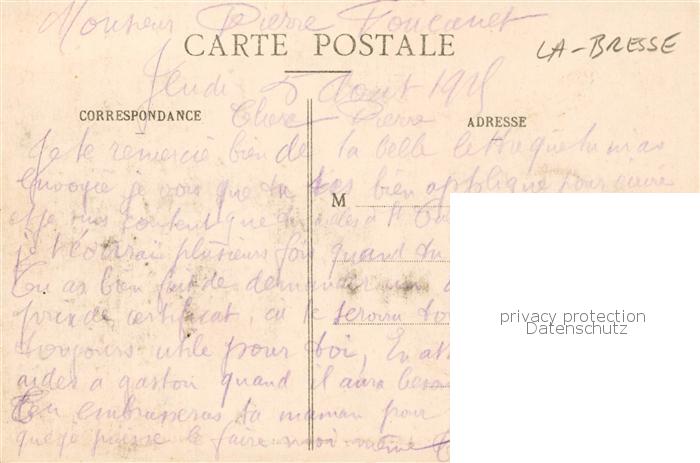 Monsieur Pierre Foucanet
CARTE POSTALE
LA-BRESSE
Jeudi 5 Août 1915
CORRESPONDANCE
ADRESSE
Cher Pierre
Je te remercie bien de ta belle lettre que tu m'as
envoyié je vois que tu t'es bien appliqué pour
je suis content que tu
je t'écrirai plusieurs fois quand tu
M
Tu as bien fait de demander un
prix de certificat, ca te servira
toujours utile pour toi, En
aides a gaston quand il aura
Tu embrasseras ta maman pour
que je puisse le faire moi même
privacy protection
Datenschutz